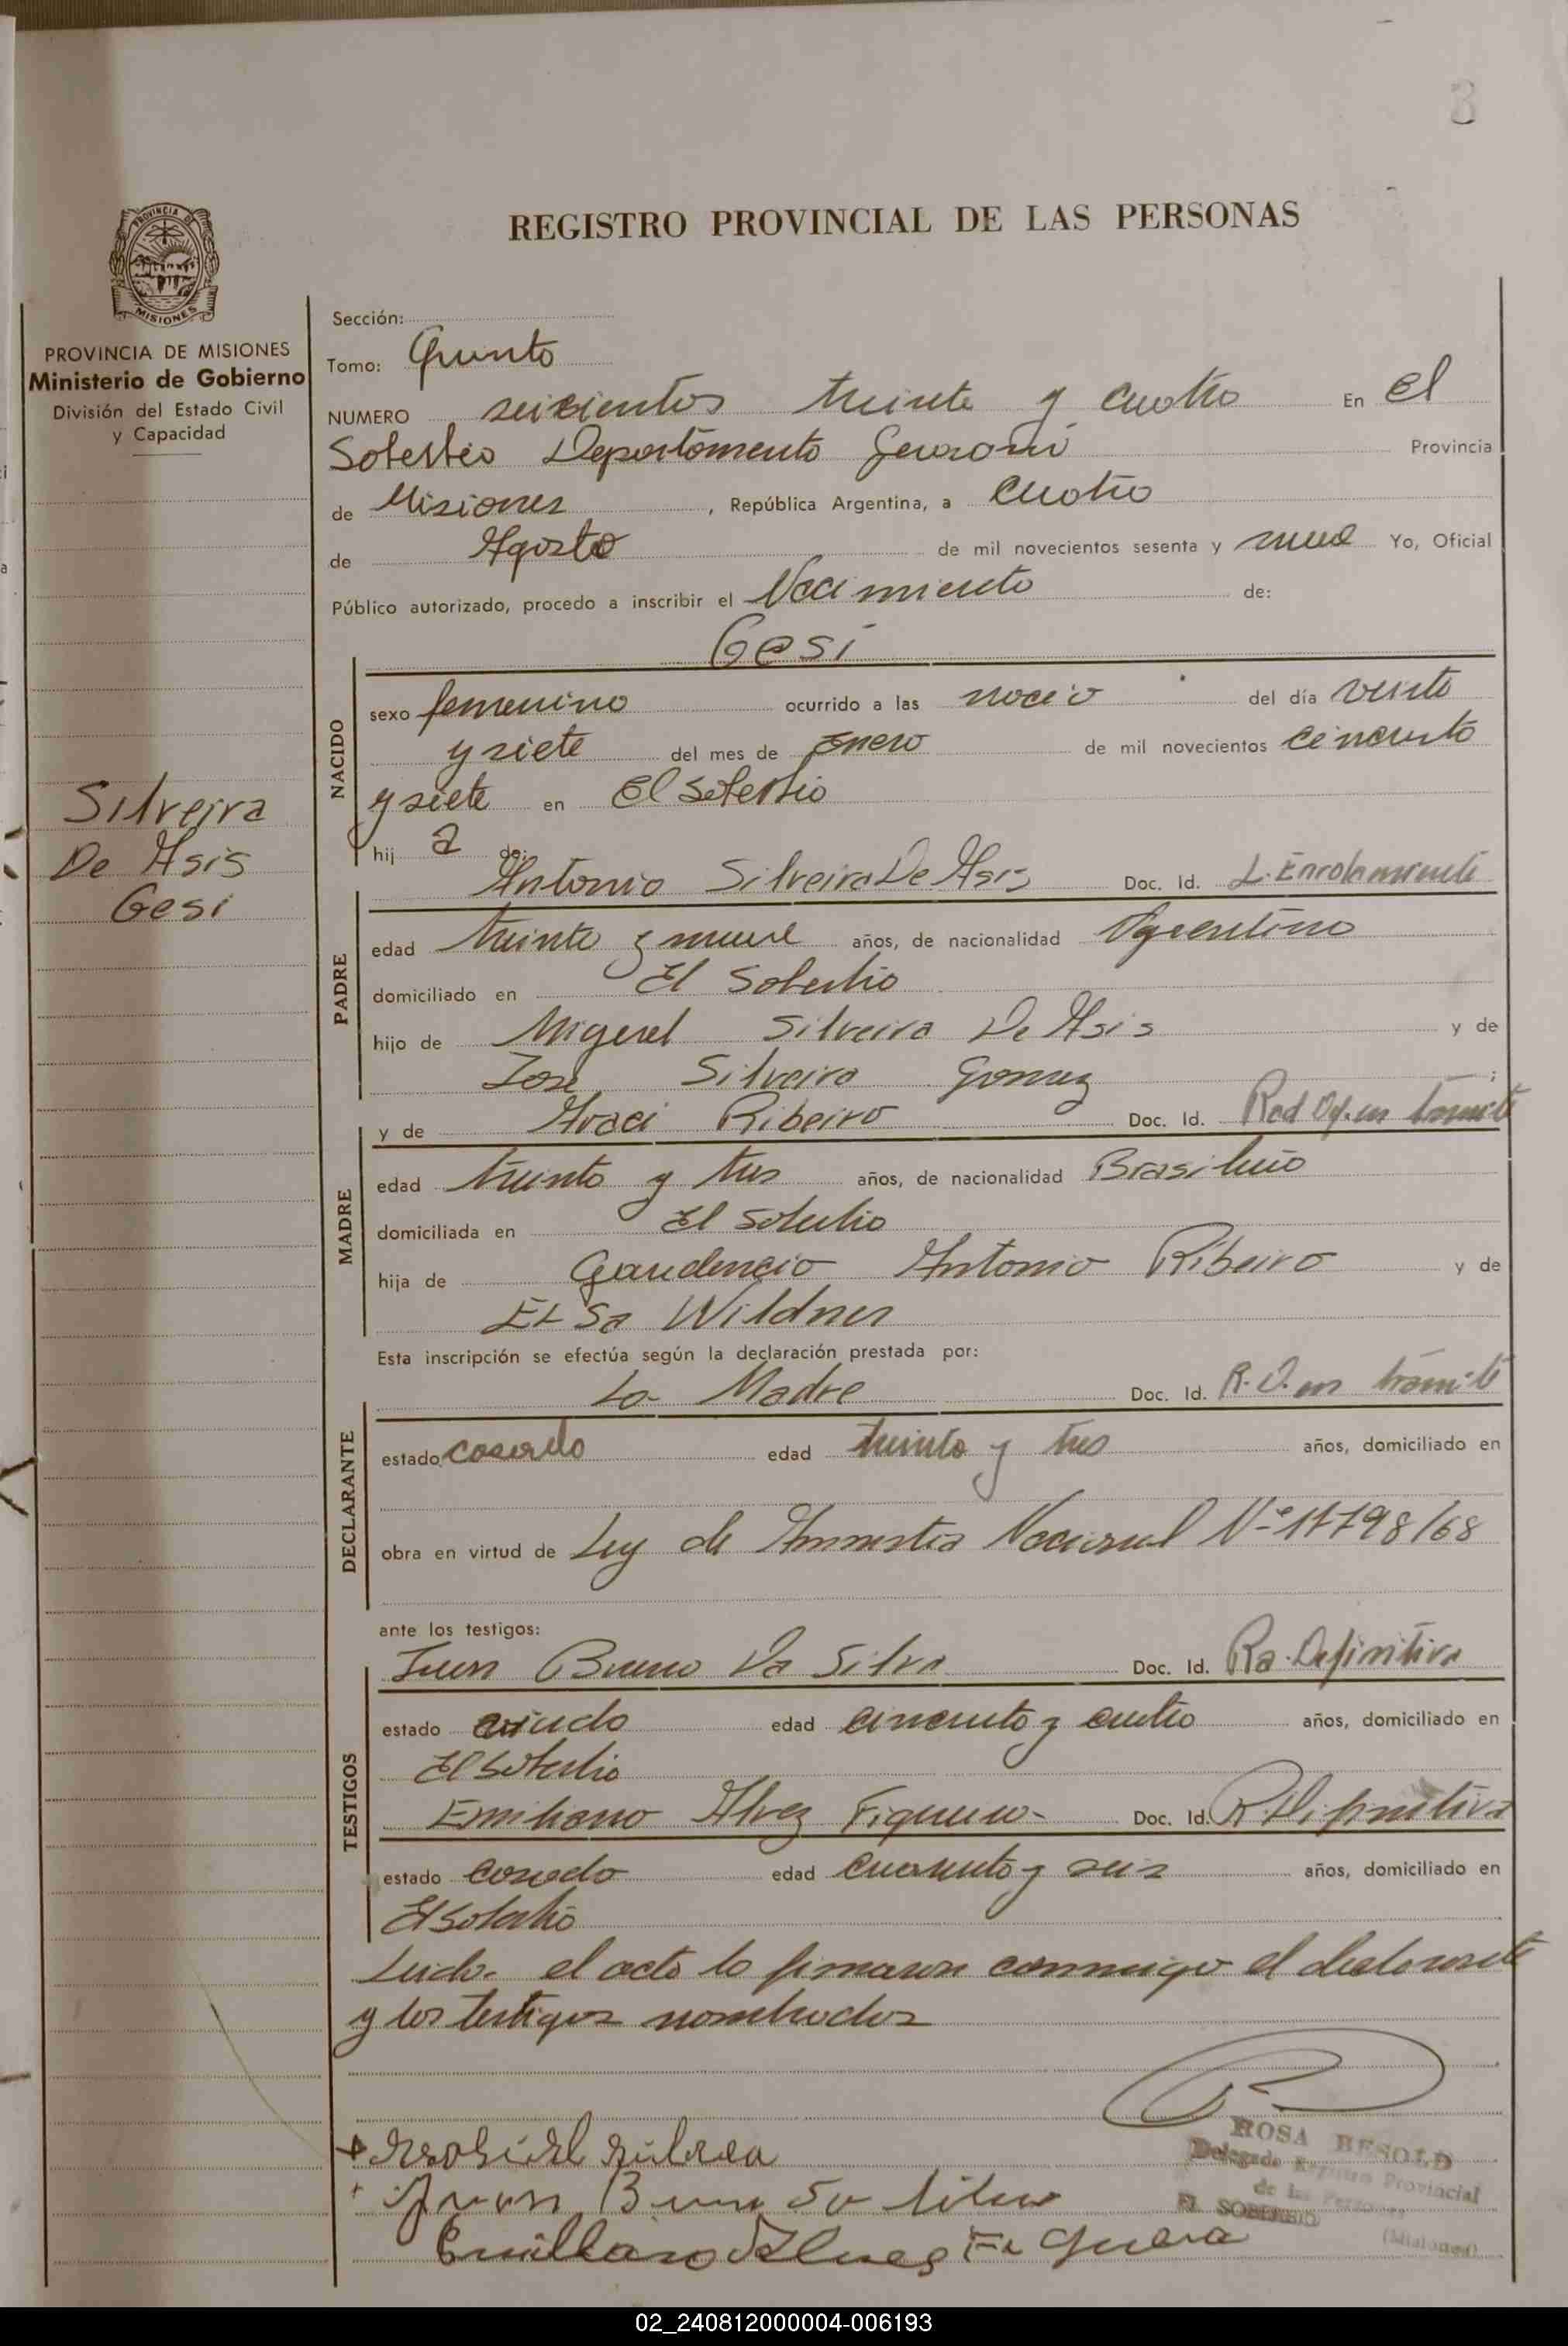 3
PROVINCIA DE
MISIONES
REGISTRO PROVINCIAL DE LAS PERSONAS
PROVINCIA DE MISIONES
Ministerio de Gobierno
División del Estado Civil
y Capacidad
Silveira
De Asis
Gesi
Sección:
Tomo: Quinto
NUMERO seicientos treinta y cuatro En El
Soberbio Departamento Guarani Provincia
de Misiones , República Argentina, a cuatro
de Agosto de mil novecientos sesenta y nueve Yo, Oficial
Público autorizado, procedo a inscribir el Nacimiento de:
Gesi
NACIDO
sexo femenino ocurrido a las del día veinte
y siete del mes de Enero de mil novecientos cincuenta
y siete en El Soberbio
hij a de:
Antonio Silveira De Asis Doc. Id. L. Enrolamiento
PADRE
edad treinta y nueve años, de nacionalidad Argentino
domiciliado en El Soberbio
hijo de Miguel Silveira De Asis y de
Silveira Gomez ;
y de Araci Ribeiro Doc. Id. Rad. en tramite
MADRE
edad treinta y tres años, de nacionalidad
domiciliada en El Soberbio
hija de Gaudencio Antonio Ribeiro y de
Elsa Wildner
Esta inscripción se efectúa según la declaración prestada por:
La Madre Doc. Id. R. D. en tramite
DECLARANTE
estado casado edad treinta y tres años, domiciliado en
obra en virtud de Ley de Amnistia Nacional Nº 17798/68
ante los testigos:
Juan Bueno Da Silva Doc. Id. Ra. Definitiva
TESTIGOS
estado viudo edad cincuenta y cuatro años, domiciliado en
El Soberbio
Emiliano Alvez Doc. Id. R. Definitiva
estado casado edad cuarenta y seis años, domiciliado en
El Soberbio
Leida el acta la firmaron conmigo el declarante
y los testigos nombrados
ROSA BESOLD
Delegado Registro Provincial
de las Personas
EL SOBERBIO
(Misiones)
02_240812000004-006193